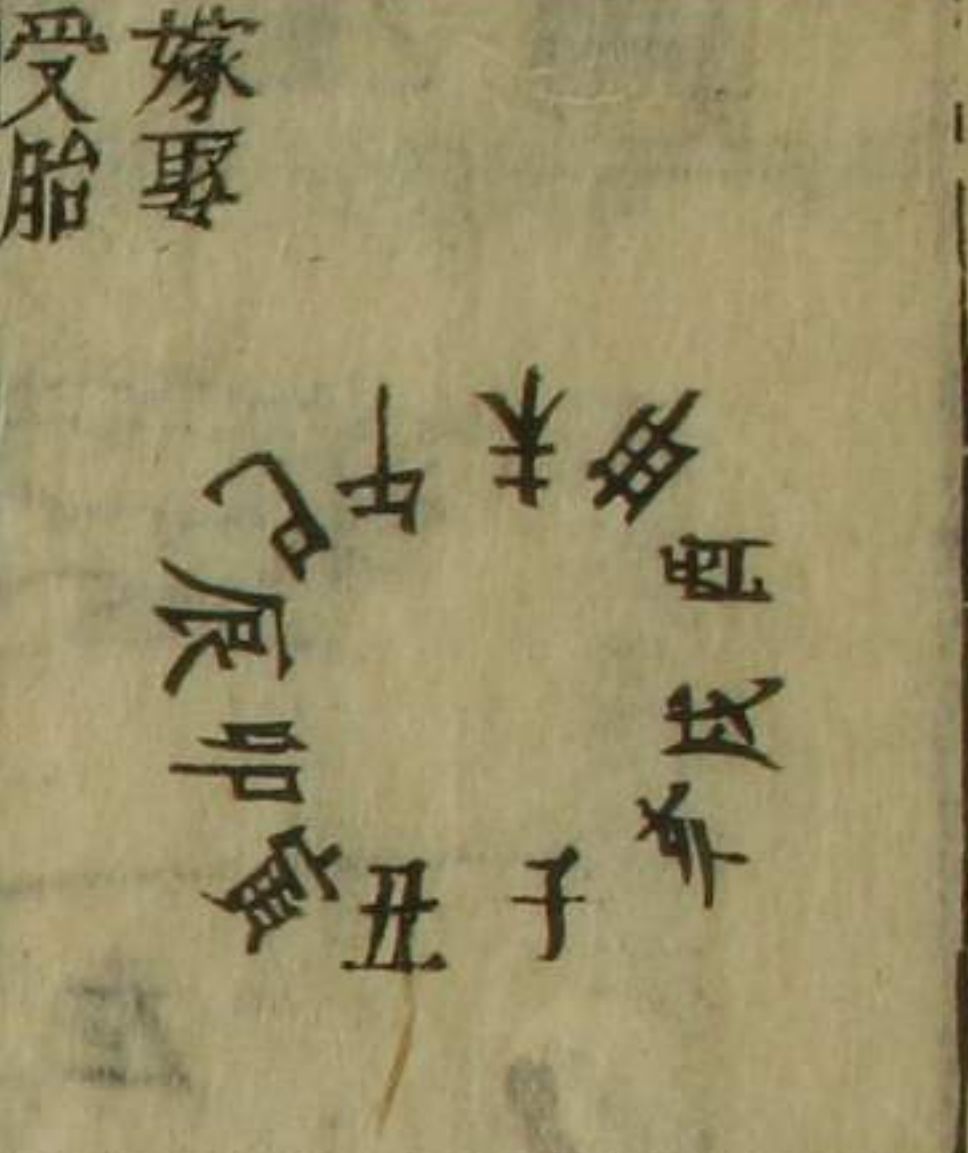 嫁娶
受胎
子
丑
寅
卯
辰
巳
午
未
申
酉
戌
亥